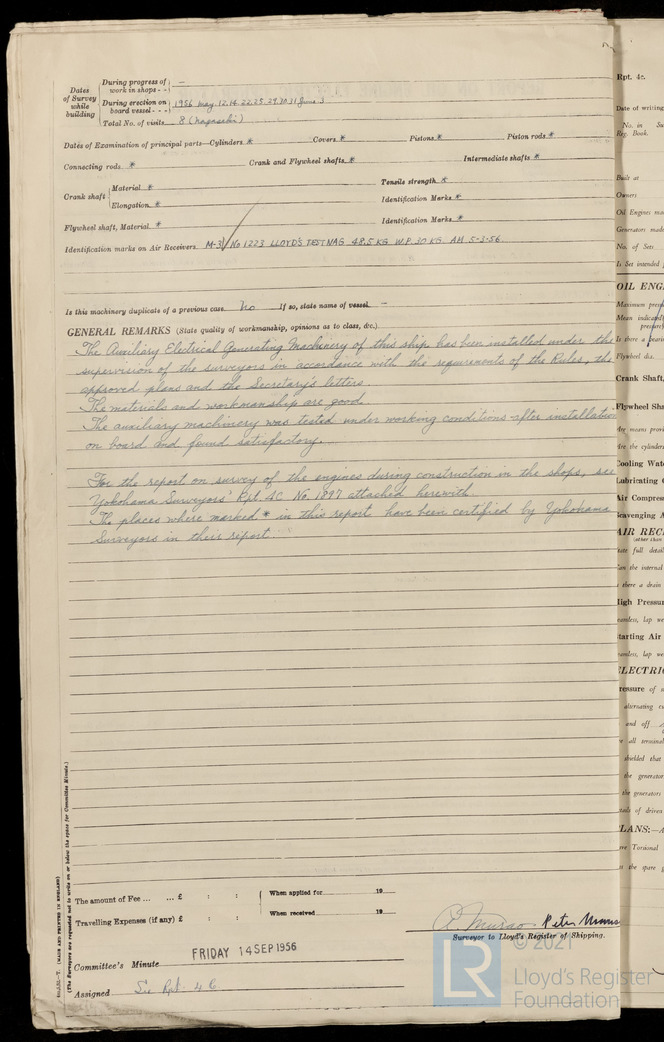 Dates of Survey while building
During progress of work in shops - - —
During erection on board vessel - - - 1956 May 12.14.22.25.29.30.31 June 3
Total No. of visits 8 (Nagasaki)
Dates of Examination of principal parts—Cylinders * Covers * Pistons * Piston rods *
Connecting rods * Crank and Flywheel shafts * Intermediate shafts *
Crank shaft Material * Tensile strength *
Elongation * Identification Marks *
Flywheel shaft, Material * Identification Marks *
Identification marks on Air Receivers M-3 No 1223 LLOYD'S TEST NAG 48.5 KG W.P. 30 KG AH 5-3-56
Is this machinery duplicate of a previous case No If so, state name of vessel —
GENERAL REMARKS (State quality of workmanship, opinions as to class, &c.)
The Auxiliary Electrical Generating Machinery of this ship has been installed under the
supervision of the surveyors in accordance with the requirements of the Rules, the
approved plans and the Secretary's letters.
The materials and workmanship are good.
The auxiliary machinery was tested under working conditions after installation
on board and found satisfactory.
For the report on survey of the engines during construction in the shops, see
Yokohama Surveyors' Rpt. 4C No. 1897 attached herewith.
The places where marked * in this report have been certified by Yokohama
Surveyors in their report.
The amount of Fee ... ... £ : : When applied for 19
Travelling Expenses (if any) £ : : When received 19
Surveyor to Lloyd's Register of Shipping.
FRIDAY 14 SEP 1956
Committee's Minute
Assigned See Rpt. 4C
(MADE AND PRINTED IN ENGLAND)
(The Surveyors are requested not to write on or below the space for Committee Minute.)
© 2021
LR
Lloyd's Register
Foundation
Rpt. 4c.
Date of writing
No. in
Reg. Book.
Built at
Owners
Oil Engines
Generators made
No. of Sets
Is Set intended
OIL ENG
Maximum
Mean indicated
Is there a
Flywheel dia.
Crank Shaft,
Flywheel Sha
Are means
Are the cylinders
Cooling Wate
Lubricating
Air Compress
Scavenging A
AIR REC
(other than
State full detail
Can the internal
is there a drain
High Pressur
seamless, lap
Starting Air
seamless, lap
ELECTRIC
Pressure of
alternating
and off
all terminal
shielded that
the generator
the generators
details of driven
PLANS:—A
Torsional
is the spare